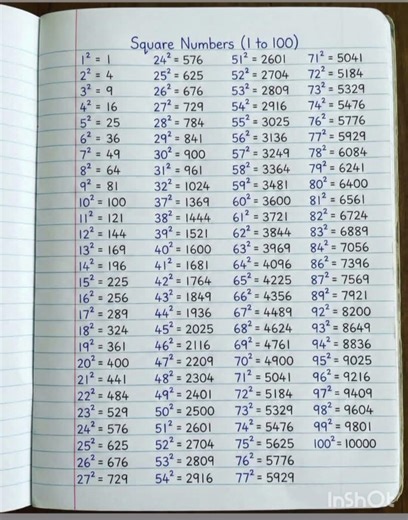 Square Numbers (1 to 100)
1² = 1
2² = 4
3² = 9
4² = 16
5² = 25
6² = 36
7² = 49
8² = 64
9² = 81
10² = 100
11² = 121
12² = 144
13² = 169
14² = 196
15² = 225
16² = 256
17² = 289
18² = 324
19² = 361
20² = 400
21² = 441
22² = 484
23² = 529
24² = 576
25² = 625
26² = 676
27² = 729
24² = 576
25² = 625
26² = 676
27² = 729
28² = 784
29² = 841
30² = 900
31² = 961
32² = 1024
37² = 1369
38² = 1444
39² = 1521
40² = 1600
41² = 1681
42² = 1764
43² = 1849
44² = 1936
45² = 2025
46² = 2116
47² = 2209
48² = 2304
49² = 2401
50² = 2500
51² = 2601
52² = 2704
53² = 2809
54² = 2916
51² = 2601
52² = 2704
53² = 2809
54² = 2916
55² = 3025
56² = 3136
57² = 3249
58² = 3364
59² = 3481
60² = 3600
61² = 3721
62² = 3844
63² = 3969
64² = 4096
65² = 4225
66² = 4356
67² = 4489
68² = 4624
69² = 4761
70² = 4900
71² = 5041
72² = 5184
73² = 5329
74² = 5476
75² = 5625
76² = 5776
77² = 5929
71² = 5041
72² = 5184
73² = 5329
74² = 5476
76² = 5776
77² = 5929
78² = 6084
79² = 6241
80² = 6400
81² = 6561
82² = 6724
83² = 6889
84² = 7056
86² = 7396
87² = 7569
89² = 7921
92² = 8200
93² = 8649
94² = 8836
95² = 9025
96² = 9216
97² = 9409
98² = 9604
99² = 9801
100² = 10000
InShOt